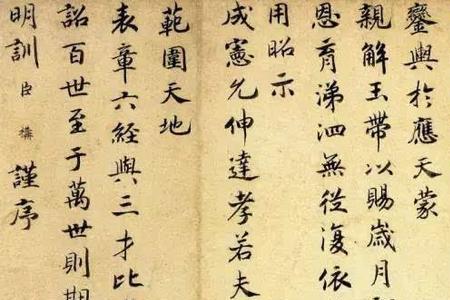 鑾輿於應天蒙
親解玉帶以賜歲月
恩育涕泗無從復依
用昭示
成憲允伸達孝若夫
範圍天地
表章六經與三才比
詔百世至于萬世則
明訓臣構謹序